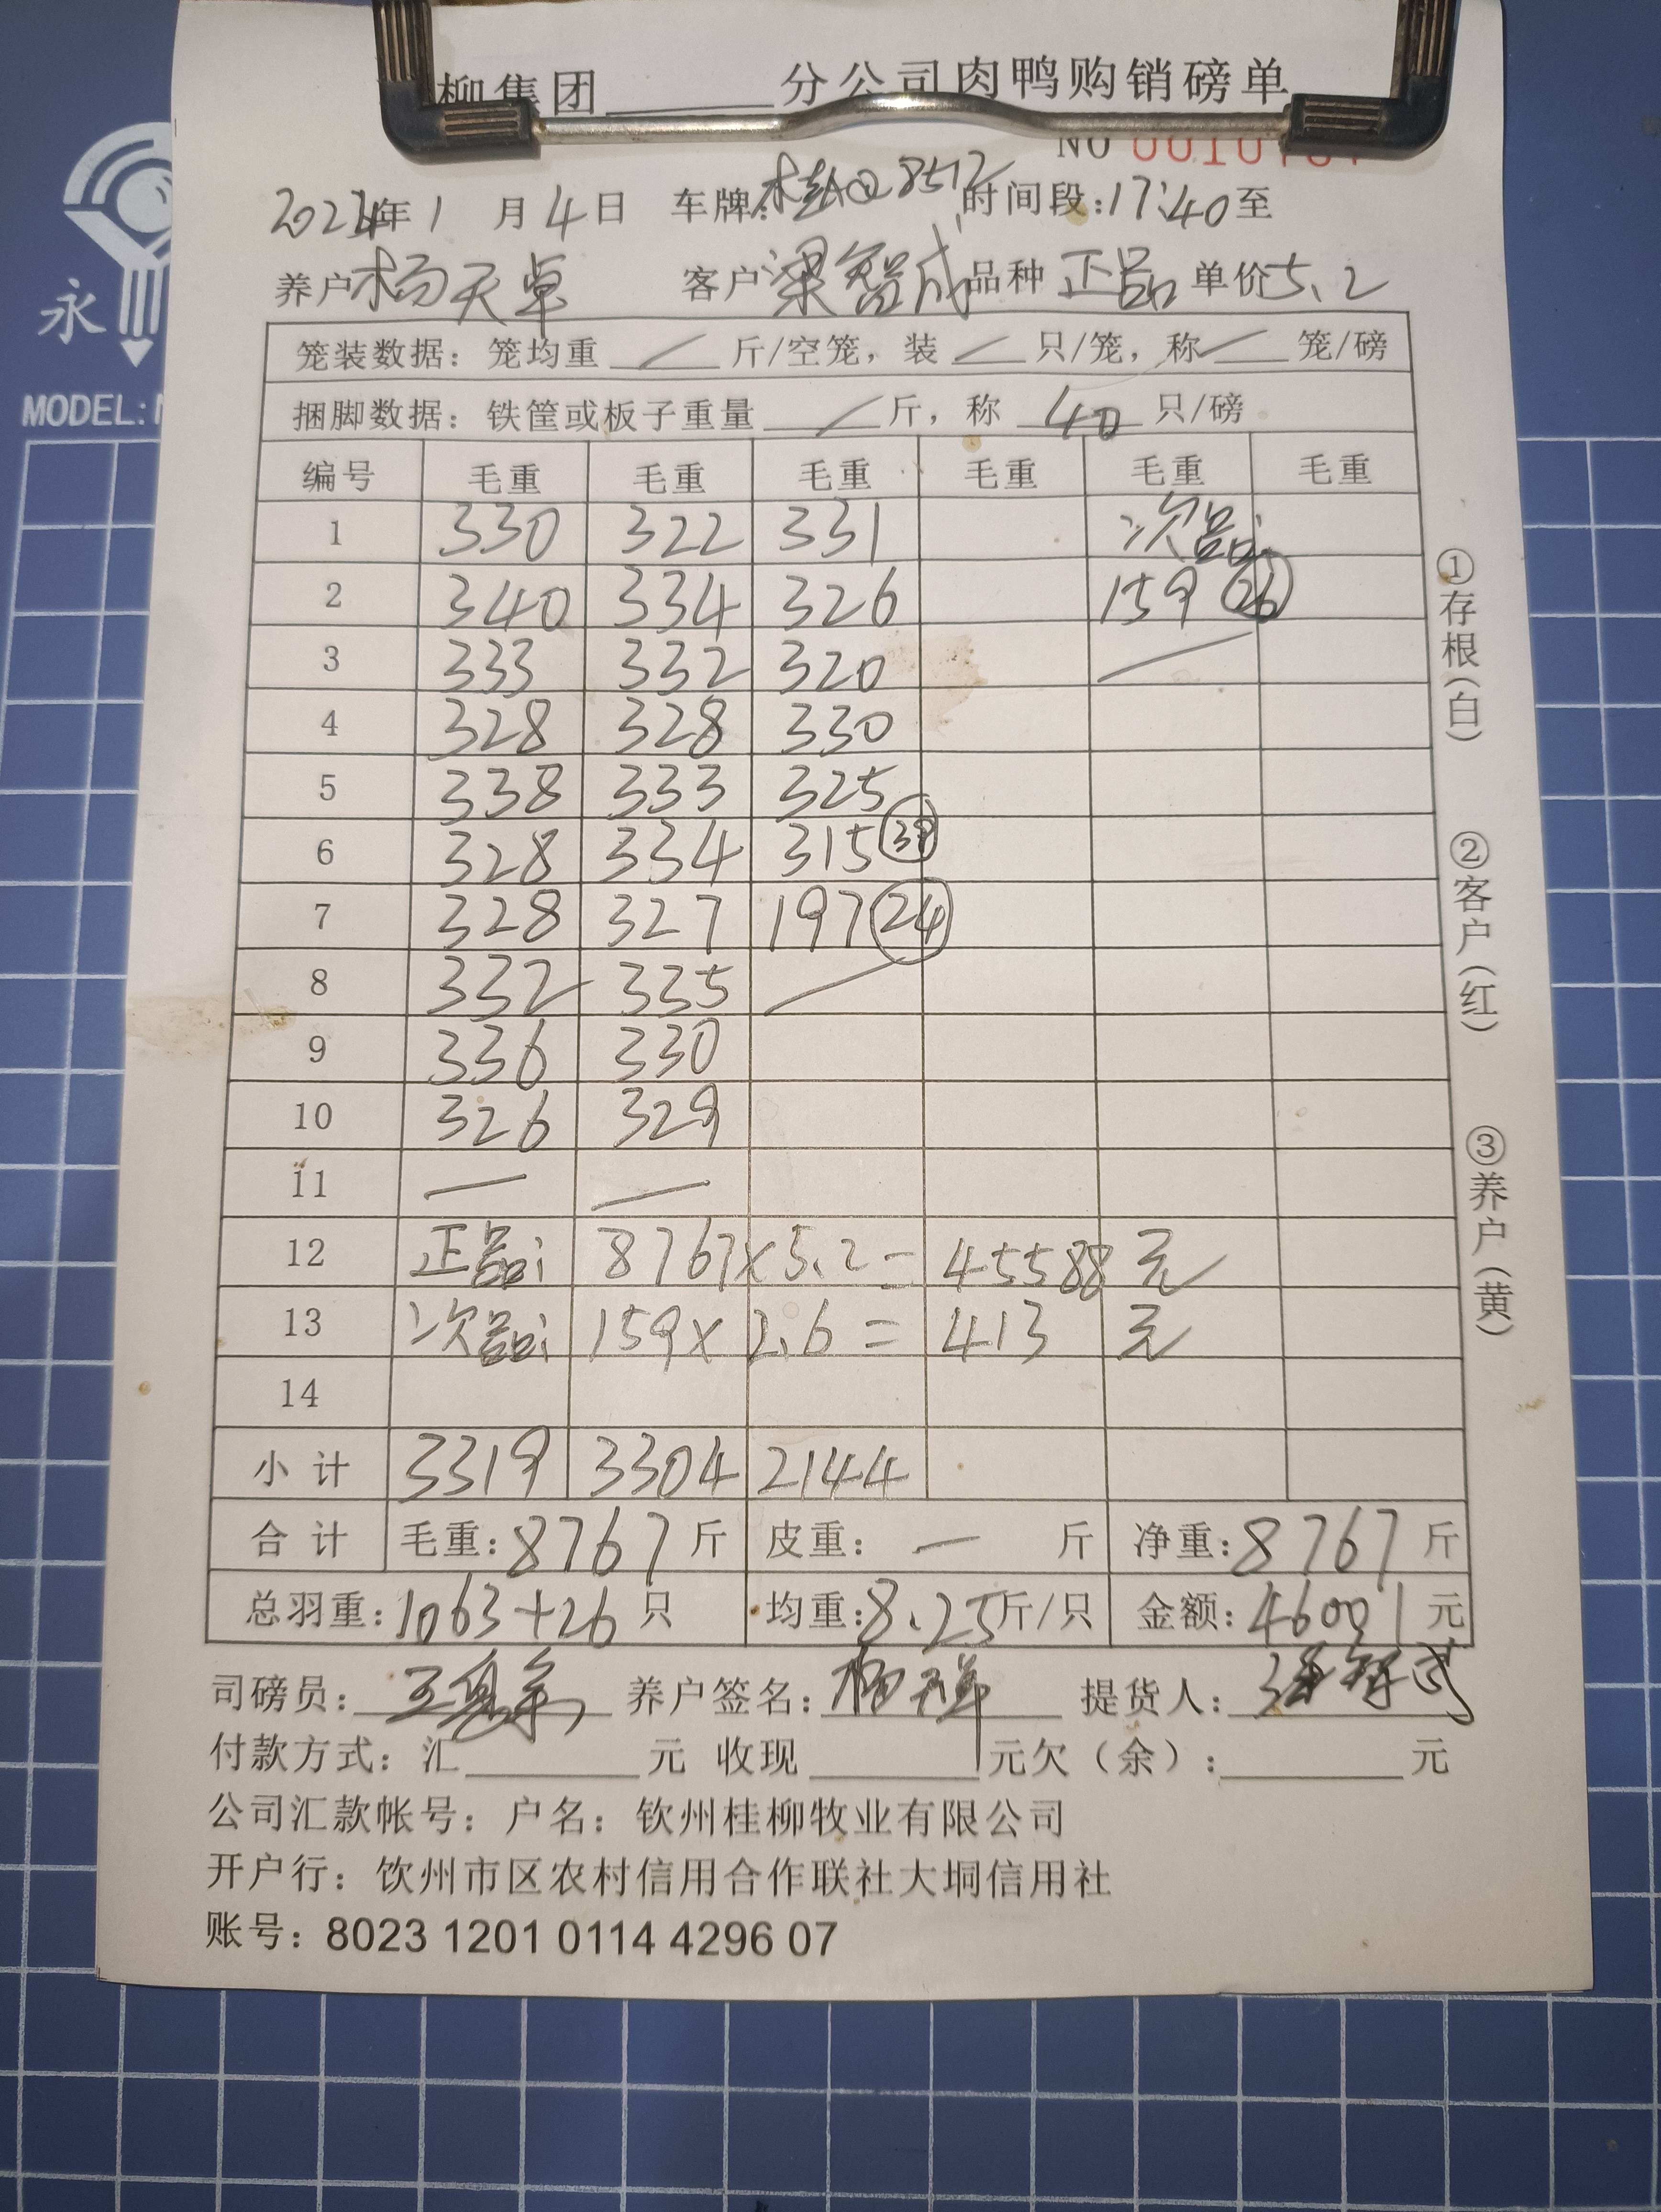 柳集团 分公司肉鸭购销磅单
NO
永
MODEL:
2024年1月4日 车牌:桂A 8512 时间段:17:40至
养户杨天卓 客户梁智成 品种 正品 单价5.2
笼装数据: 笼均重 / 斤/空笼, 装 / 只/笼, 称 / 笼/磅
捆脚数据: 铁筐或板子重量 / 斤, 称 40 只/磅
编号 毛重 毛重 毛重 毛重 毛重 毛重
1 330 322 331 次品:
2 340 334 326 159 26
3 333 332 320 /
4 328 328 330
5 338 333 325
6 328 334 315 39
7 328 327 197 24
8 332 335 /
9 336 330
10 326 329
11 — —
12 正品: 8767×5.2=45588元
13 次品: 159×2.6=413元
14
小计 3319 3304 2144
合计 毛重:8767斤 皮重: — 斤 净重:8767斤
总羽重:1063+26只 均重:8.25斤/只 金额:46001元
司磅员: 养户签名: 提货人:
付款方式: 汇 元 收现 元欠(余): 元
公司汇款帐号: 户名: 钦州桂柳牧业有限公司
开户行: 饮州市区农村信用合作联社大垌信用社
账号: 8023 1201 0114 4296 07
①存根(白)
②客户(红)
③养户(黄)